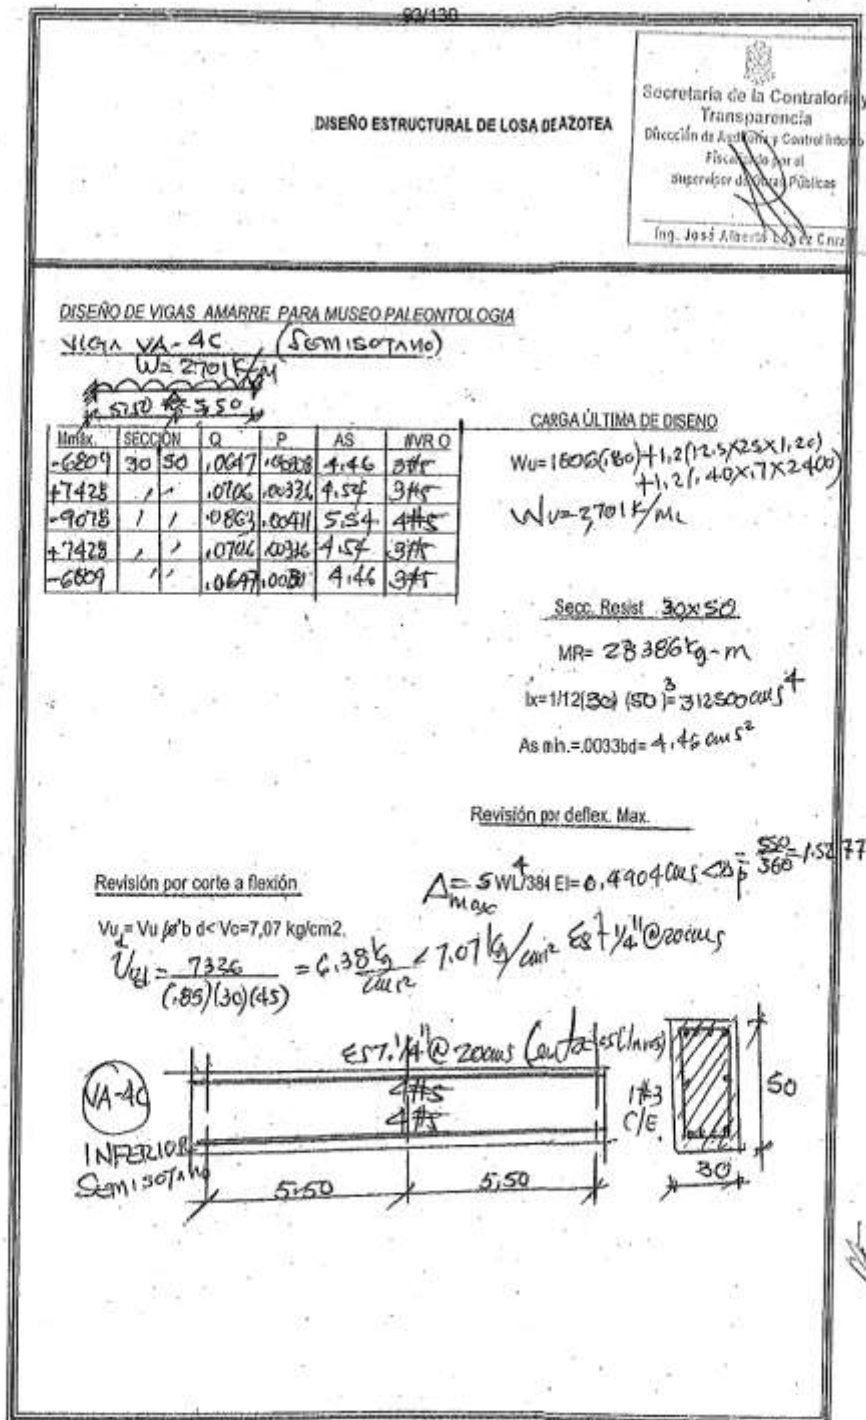 93/130
DISEÑO ESTRUCTURAL DE LOSA DE AZOTEA
Secretaría de la Contraloría y
Transparencia
Dirección de Auditoría y Control Interno
Fiscalizado por el
supervisor de Obras Públicas
Ing. José Alberto López Cruz
DISEÑO DE VIGAS AMARRE PARA MUSEO PALEONTOLOGIA
VIGA VA-4C (SEMISOTANO)
W= 2701 K/M
5.50 5.50
Mmáx. SECCIÓN Q P AS #VR O
-6809 30 50 .0647 .00308 4.46 3#5
+7428 ,, ,, .0706 .00336 4.54 3#5
-9078 ,, ,, .0863 .00411 5.54 4#5
+7428 ,, ,, .0706 .00336 4.54 3#5
-6809 ,, ,, .0647 .0030 4.46 3#5
CARGA ÚLTIMA DE DISENO
Wu=1806(.80)+1.2(12.5X25X1.20)
+1.2(.40X.7X2400)
Wu=2,701K/ML
Secc. Resist 30x50
MR= 28386kg-m
Ix=1/12(30) (50)3=312500cms4
As min.=.0033bd= 4.46 cms2
Revisión por deflex. Max.
Δmaxo=5WL4/384 EI= 0.4904cms<Δp=550/360=1.5277
Revisión por corte a flexión
Vu= Vu /ø'b d< Vc=7,07 kg/cm2.
Uud=7326/(.85)(30)(45) = 6.38kg/cm2 < 7.07 kg/cm2 Est 1/4" @20cms
EST. 1/4"@ 20cms
VA-4C
4#5
4#5
1#3
C/E.
50
INFERIOR
Semisotano
5.50 5.50
30